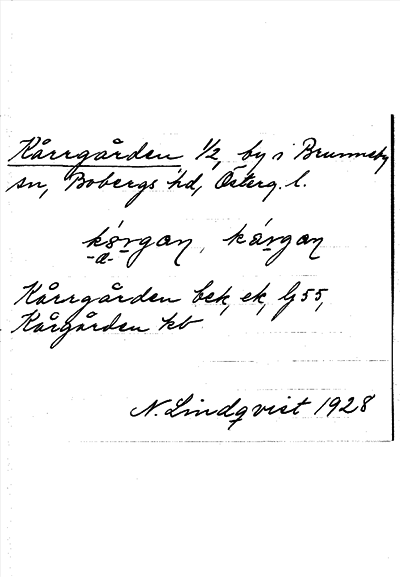 Kårrgården 1/2, by i Brunneby
sn, Bobergs hd, Österg. l.
kǻrgan, kǻrgan
-a-
Kårrgården bek, ek, G55,
Kårgården kb
N. Lindqvist 1928